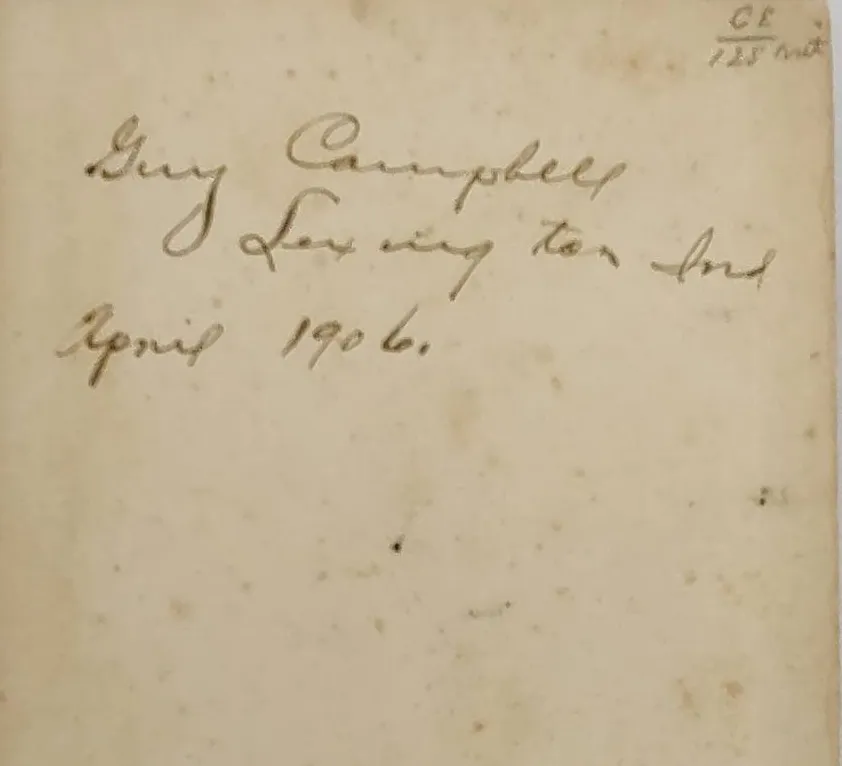 C E
125 net
Guy Campbell
Lexington Ind
April 1906.